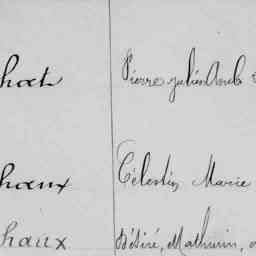 hoet Pierre julien
haux Célestin Marie
haux Désiré, Mathurin,